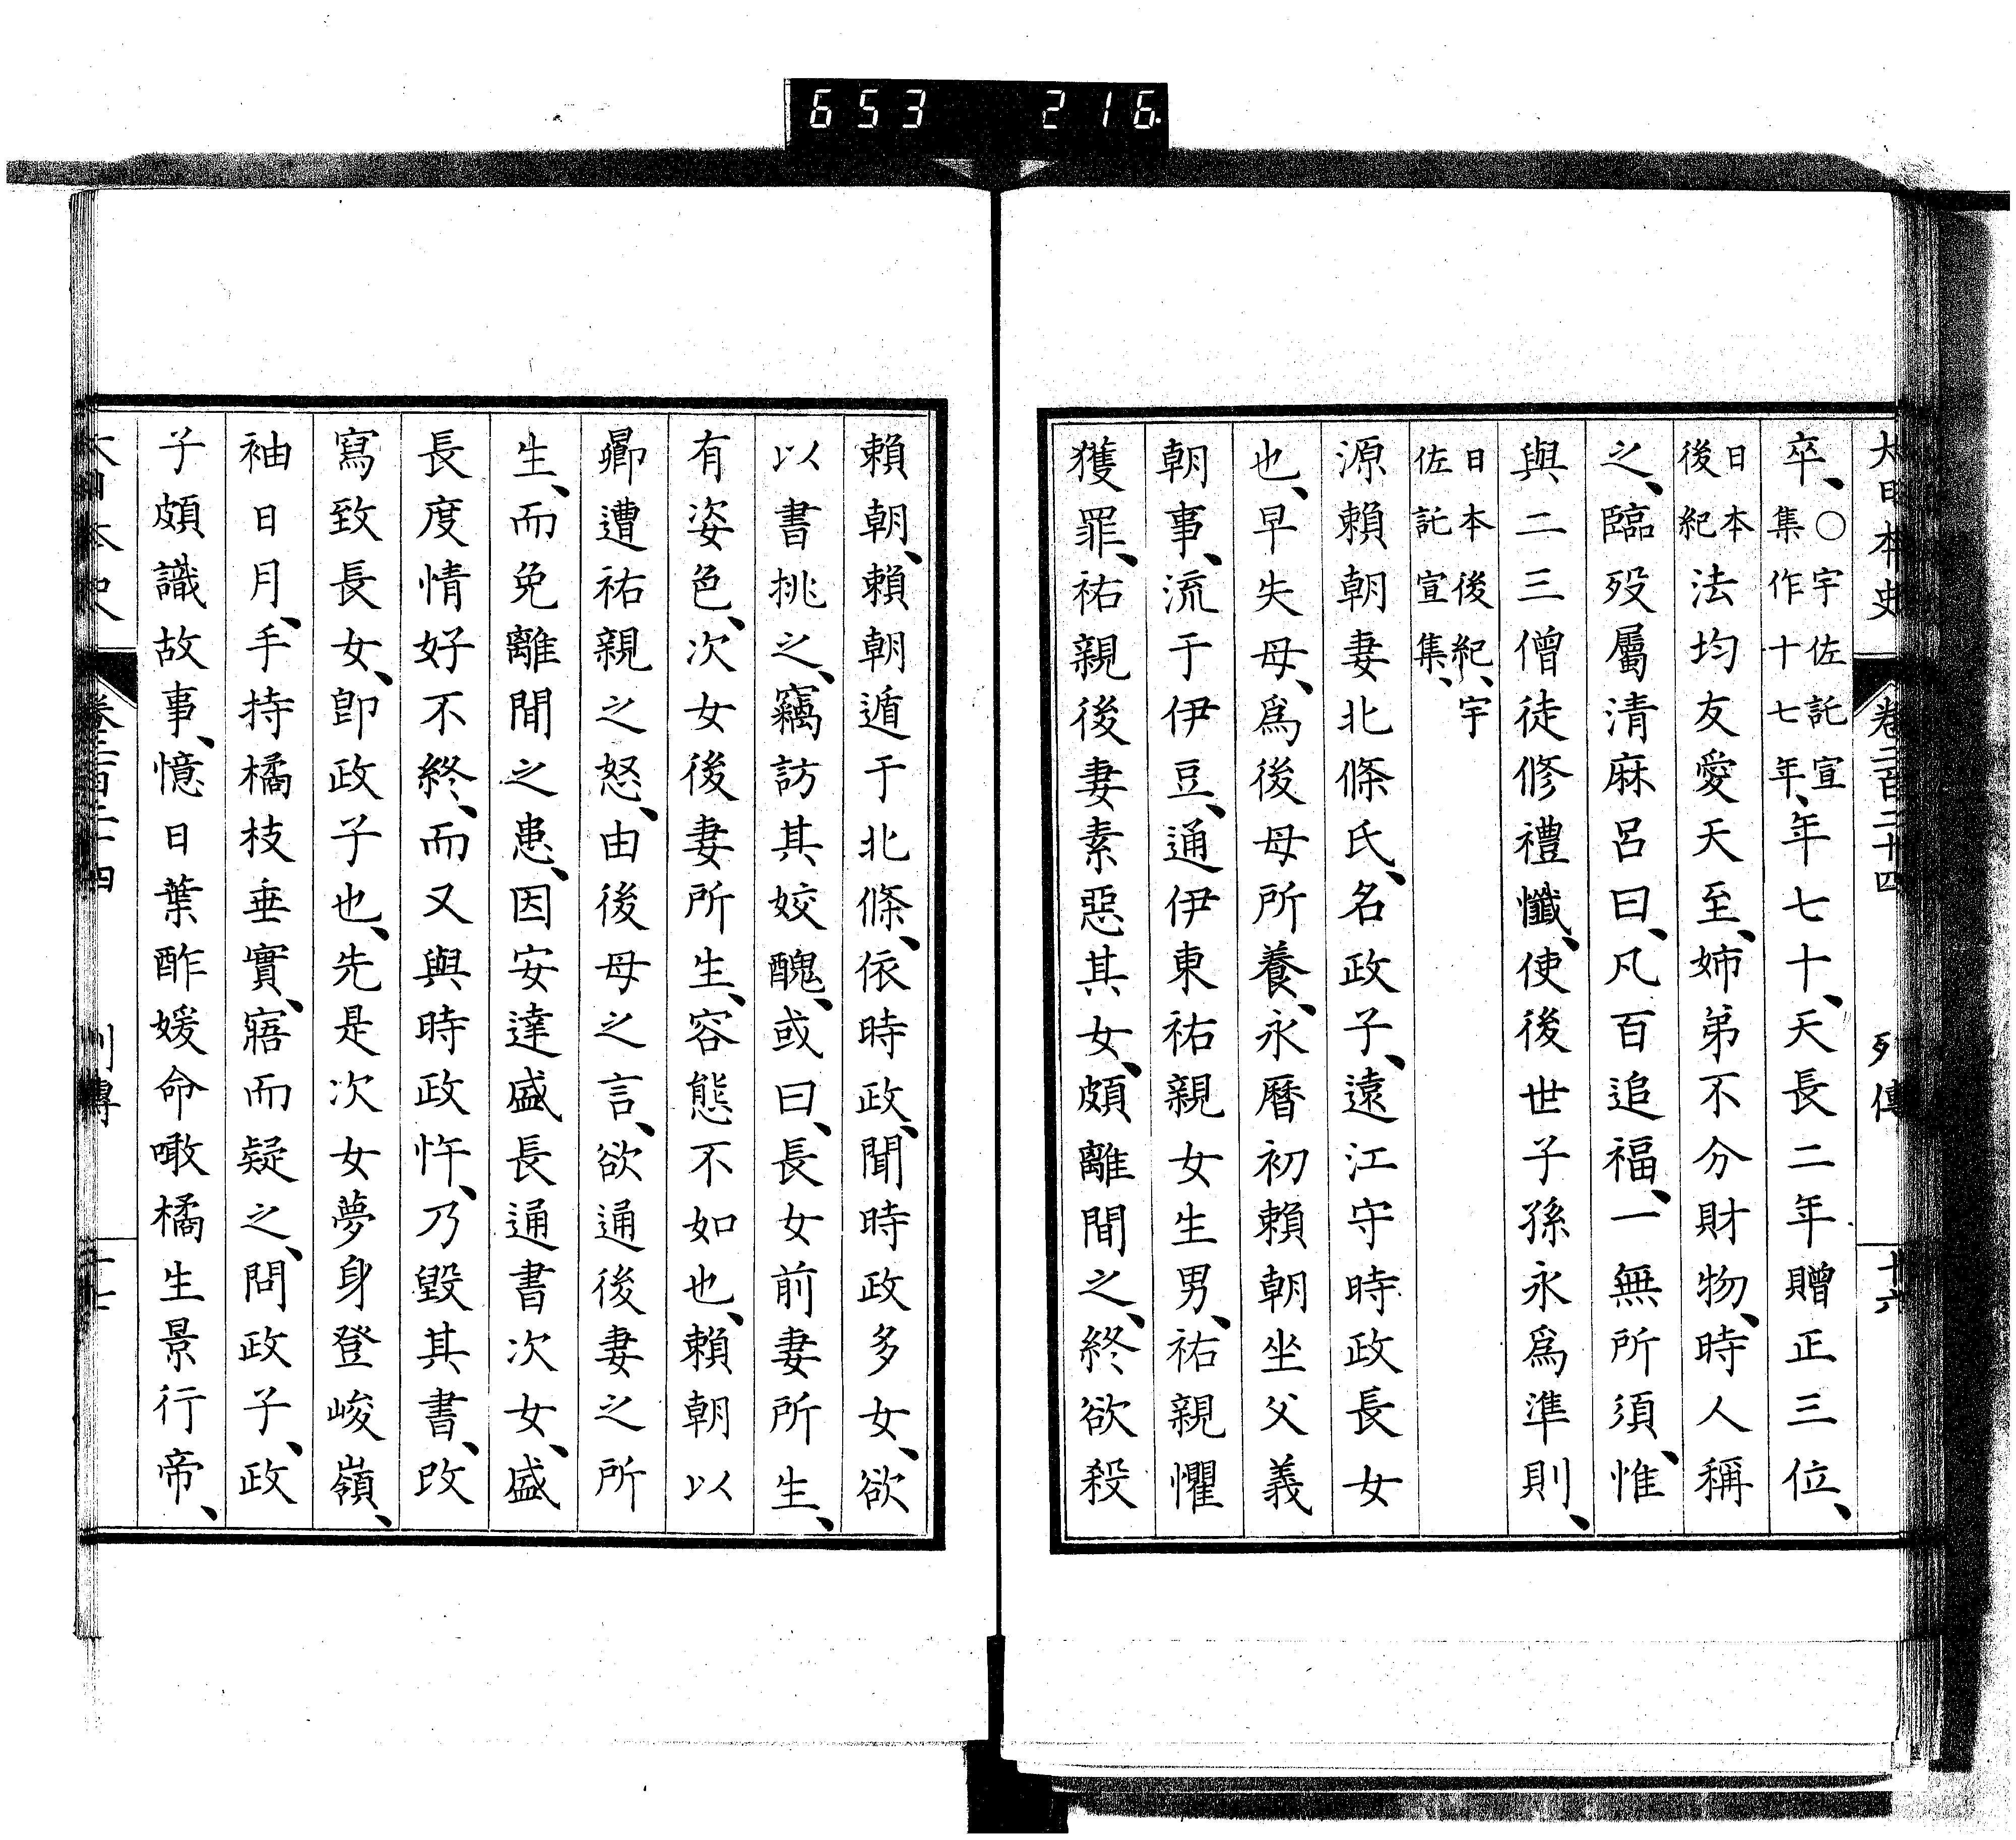 653 216
大日本史 卷二百二十四 列傳 十六
卒、○宇佐託宣集作十七年、年七十、天長二年贈正三位、
日本後紀法均友愛天至、姉弟不分財物、時人稱
之、臨歿屬清麻呂曰、凡百追福、一無所須、惟
與二三僧徒修禮懺、使後世子孫永爲準則、
日本後紀、宇佐託宣集、
源賴朝妻北條氏、名政子、遠江守時政長女
也、早失母、爲後母所養、永曆初賴朝坐父義
朝事、流于伊豆、通伊東祐親女生男、祐親懼
獲罪、祐親後妻素惡其女、頗離間之、終欲殺
賴朝、賴朝遁于北條、依時政、聞時政多女、欲
以書挑之、竊訪其姣醜、或曰、長女前妻所生、
有姿色、次女後妻所生、容態不如也、賴朝以
曏遭祐親之怒、由後母之言、欲通後妻之所
生、而免離間之患、因安達盛長通書次女、盛
長度情好不終、而又與時政忤、乃毀其書、改
寫致長女、卽政子也、先是次女夢身登峻嶺、
袖日月、手持橘枝垂實、寤而疑之、問政子、政
子頗識故事、憶日葉酢媛命噉橘生景行帝、
大日本史 卷二百二十四 列傳 十七